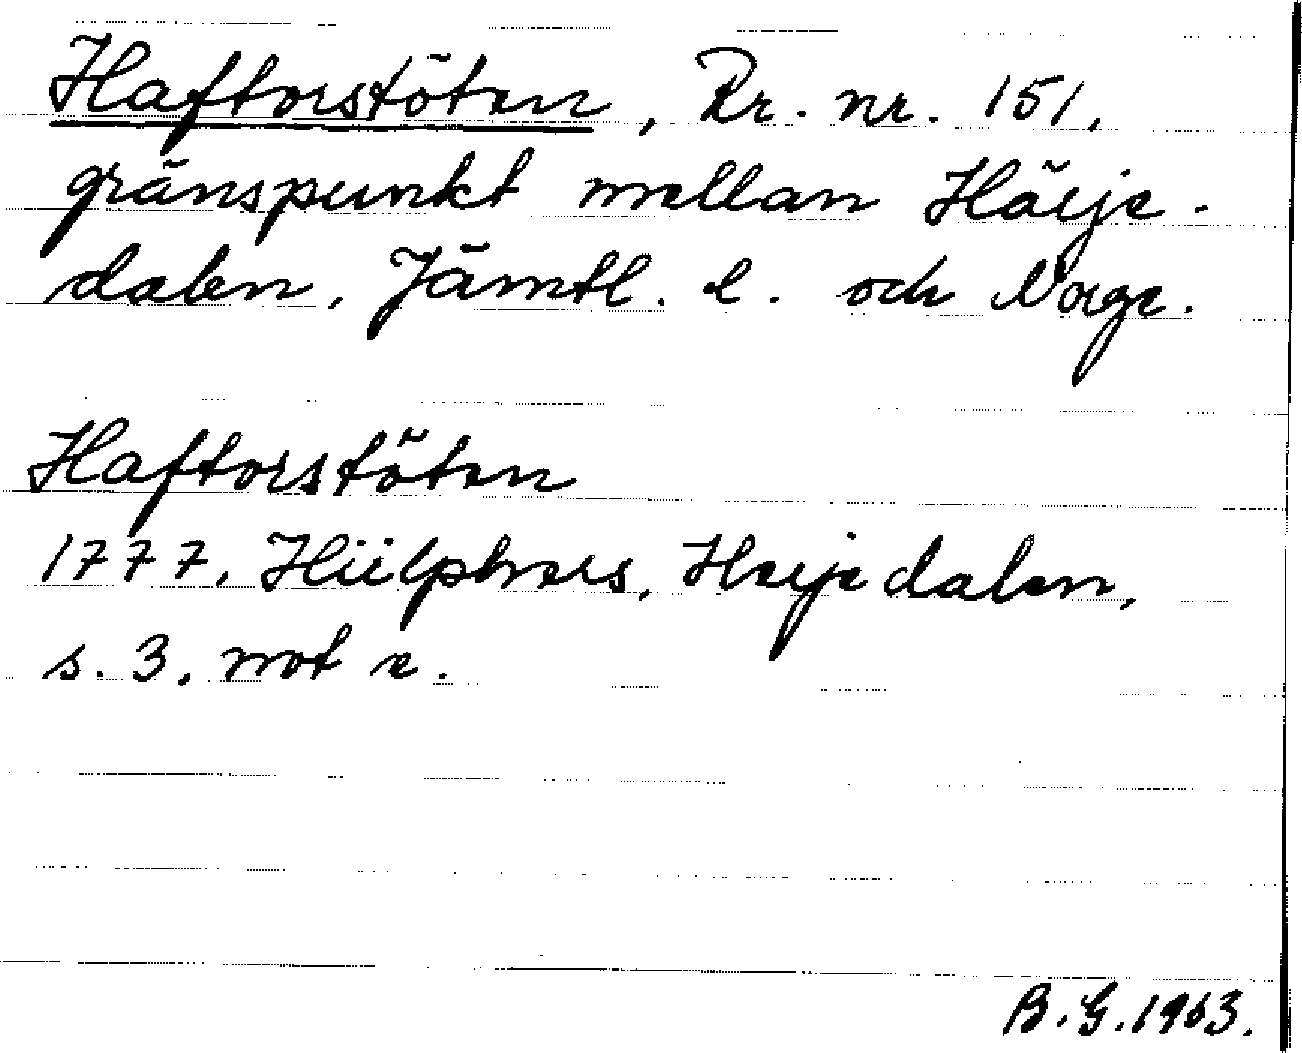 Haftorstöten, Rr. nr. 151,
gränspunkt mellan Härje-
dalen, Jämtl. l. och Norge.
Haftorstöten
1777, Hülphers, Herjedalen,
s. 3, not e.
B. G. 1963.